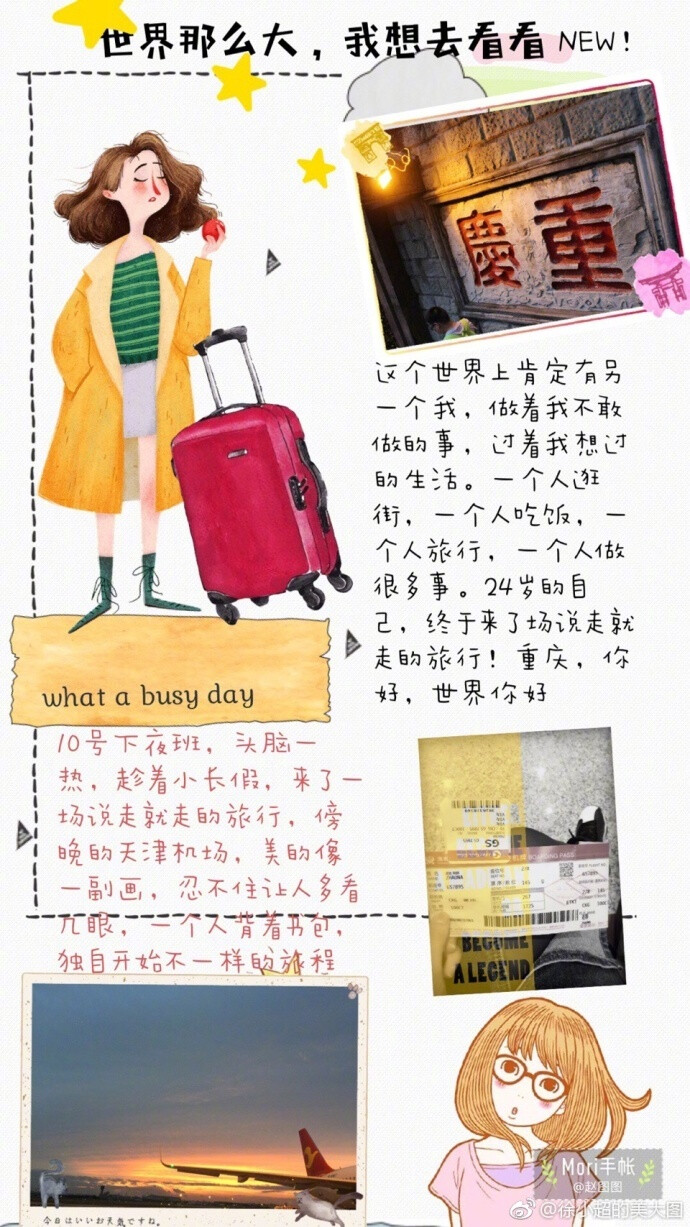 世界那么大，我想去看看 NEW！
慶重
这个世界上肯定有另
一个我，做着我不敢
做的事，过着我想过
的生活。一个人逛
街，一个人吃饭，一
个人旅行，一个人做
很多事。24岁的自
己，终于来了场说走就
走的旅行！重庆，你
好，世界你好
what a busy day
10号下夜班，头脑一
热，趁着小长假，来了一
场说走就走的旅行，傍
晚的天津机场，美的像
一副画，忍不住让人多看
几眼，一个人背着书包，
独自开始不一样的旅程
GS
BOARDING PASS
BECOME
A LEGEND
今日はいいお天気ですね。
Mori手帐
@赵图图
@徐小超的美天图